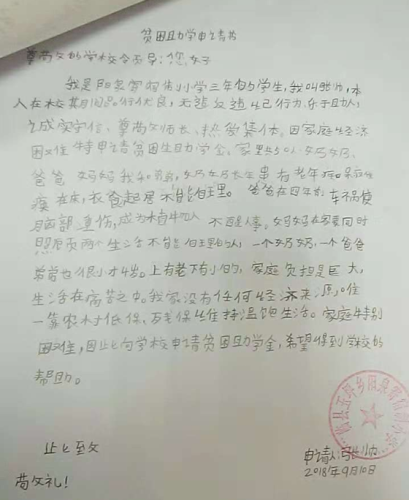 贫困助学申请书
尊敬的学校领导：您好
我是阳泉管村小学三年级的学生，我叫张帅，本
人在校期间品行优良，无违反违纪行为，乐于助人，
诚实守信、尊敬师长、热爱集体。因家庭经济
困难特申请贫困生助学金，家里5口人奶奶，
爸爸 妈妈我和弟弟，奶奶长年患有老年
瘫在床，衣食起居不能自理。爸爸在四年前车祸使
脑部重伤，成为植物人 不醒人事。妈妈在家要同时
照顾两个生活不能自理的人，一个奶奶，一个爸爸
弟弟也很小4岁。上有老下有小的，家庭负担是巨大，
生活在高苦之中。我家没有任何经济来源。唯
一靠农村低保，五毛保维持温饱生活。家庭特别
困难，因此向学校申请贫困助学金，希望得到学校的
帮助。
此致
敬礼！
申请人：张帅
2018年9月10日